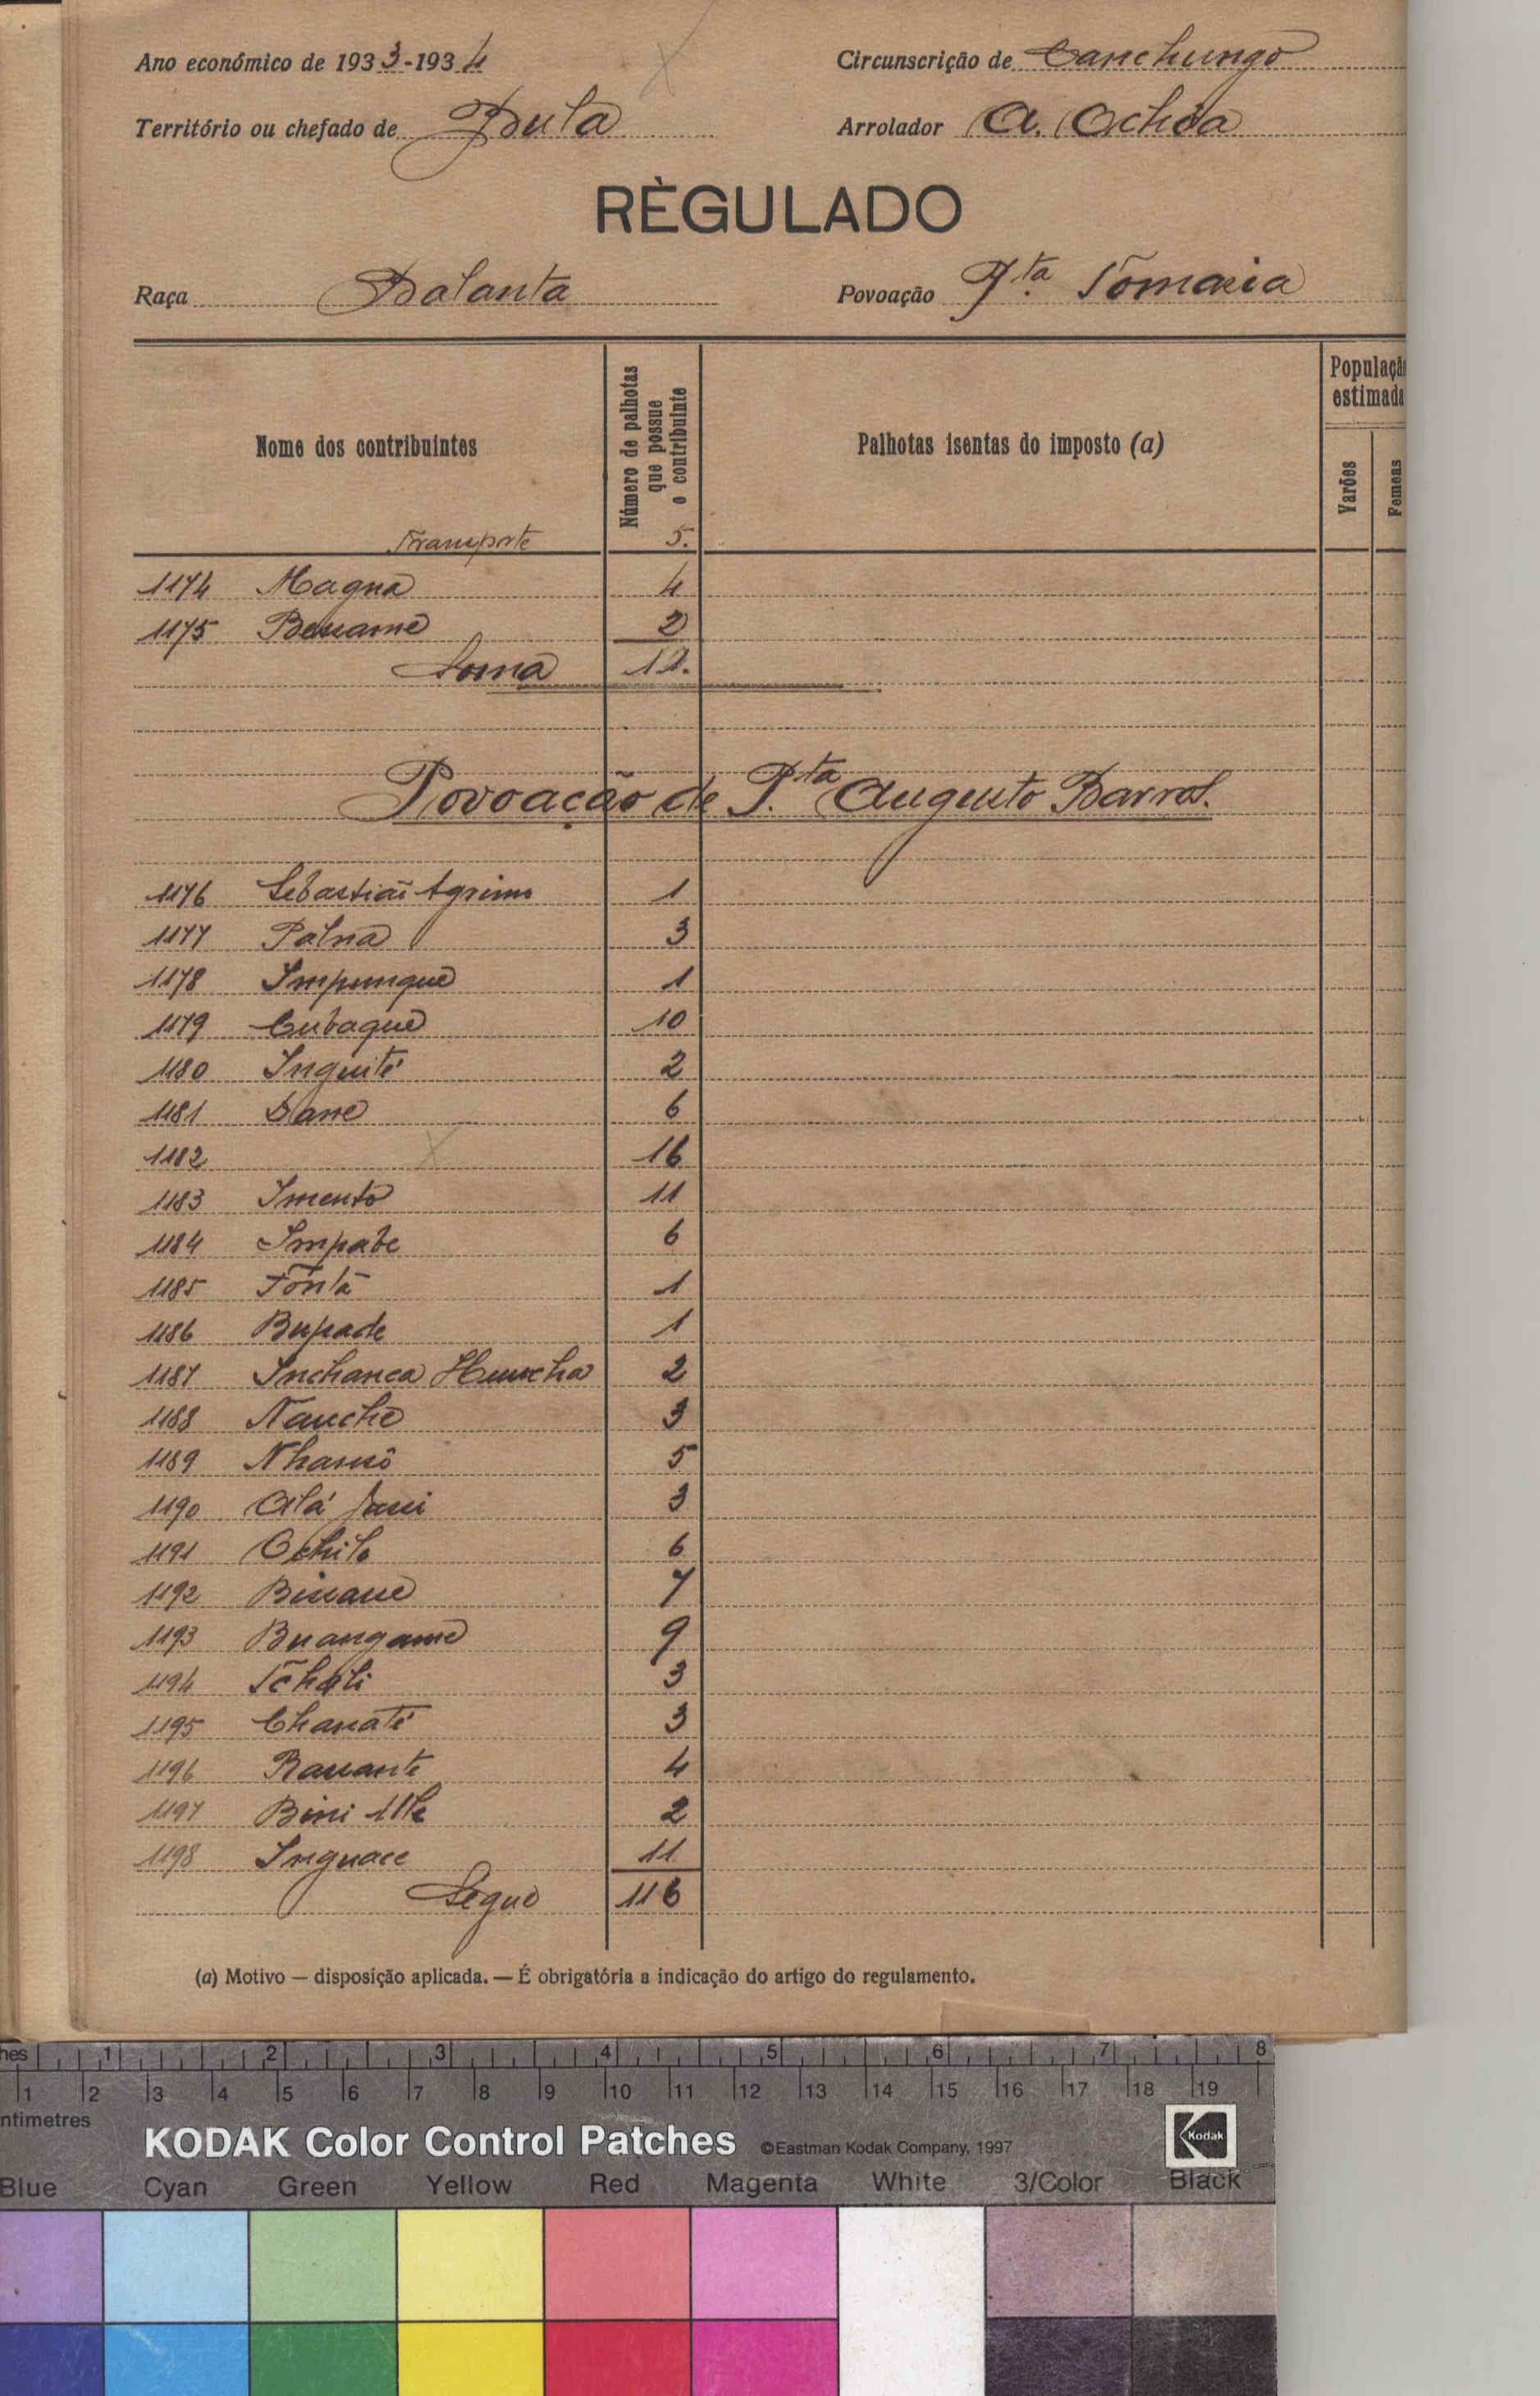 Ano económico de 1933-1934
Circunscrição de Canchungo
Território ou chefado de Bula
Arrolador A. Ochôa
RÈGULADO
Raça Balanta
Povoação P.ta Tomasia
Nome dos contribuintes
Número de palhotas que possue o contribuinte
Palhotas isentas do imposto (a)
Populaçã
estimada
Varões
Femeas
Transporte 5.
1174 Magna 4
1175 Benamé 2
Soma 11.
Povoação de P.ta Augusto Barros.
1176 Sebastião 1
1177 Palna 3
1178 Impungue 1
1179 Cubaque 10
1180 Inguité 2
1181 Dane 6
1182 16
1183 Imento 11
1184 Impabe 6
1185 Fontã 1
1186 Bupade 1
1187 Inchanca 2
1188 Nanche 3
1189 5
1190 Alá 3
1191 Ochilo 6
1192 7
1193 Buangame 9
1194 Tchali 3
1195 Chanaté 3
1196 4
1197 Bini 2
1198 Inguace 11
Segue 116
(a) Motivo — disposição aplicada. — É obrigatória a indicação do artigo do regulamento.
hes 1 2 3 4 5 6 7 8
1 2 3 4 5 6 7 8 9 10 11 12 13 14 15 16 17 18 19
ntimetres
KODAK Color Control Patches ©Eastman Kodak Company, 1997 Kodak
Blue Cyan Green Yellow Red Magenta White 3/Color Black